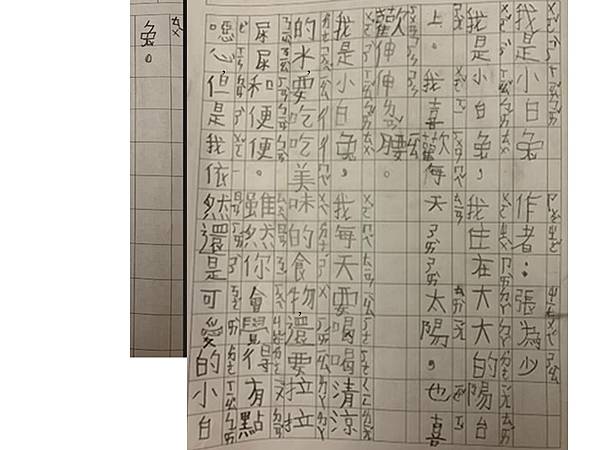 我是小白兔 作者：張為少
我是小白兔，我住在大大的陽台
上。我喜歡每天ㄕㄞˋㄕㄞˋ太陽。也喜
歡伸伸ㄌㄢˇ腰。
我是小白兔。我每天要喝喝清涼
的水，要吃吃美味的食物，還要拉拉
尿尿和便便。雖然你會覺得有點
噁心，但是我依然還是可愛的小白
兔。